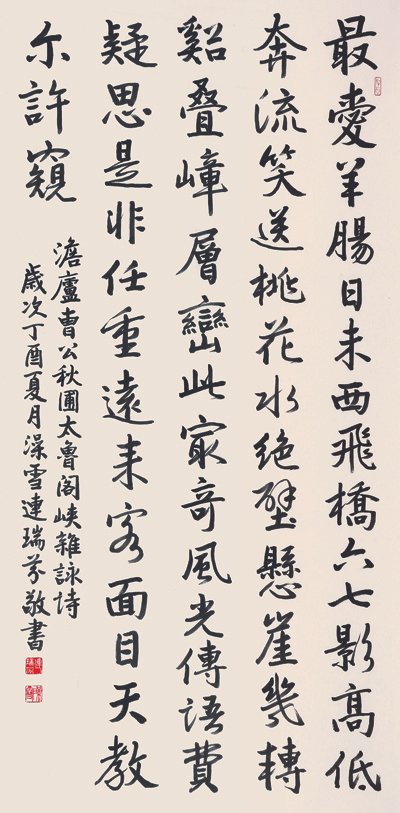 最愛羊腸日未西飛橋六七影高低
奔流笑送桃花水絕壁懸崖幾轉
谿叠嶂層巒此冣奇風光傳語費
疑思是非任重遠来客面目天教
尔許窺
澹廬曹公秋圃太魯閣峽雜詠詩
歲次丁酉夏月澡雪連瑞芬敬書